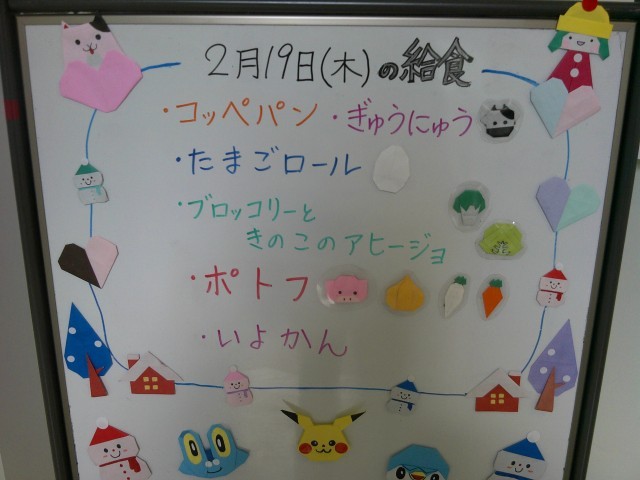 2月19日(木)の給食
・コッペパン ・ぎゅうにゅう
・たまごロール
・ブロッコリーと
きのこのアヒージョ
・ポトフ
・いよかん